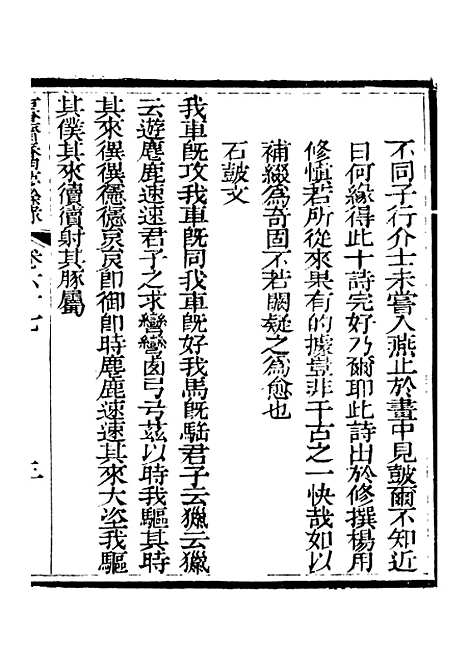 不同子行介士未嘗入燕止於畫中見皷爾不知近
日何緣得此十詩完好乃爾耶此詩出於修撰楊用
修愼若所從來果有的據豈非千古之一快哉如以
補綴為奇固不若闕疑之為愈也
石皷文
我車旣攻我車旣同我車旣好我馬旣䮫君子云獵云獵
云遊麀鹿速速君子之求鑾鑾卥弓弓茲以時我驅其時
其來䙴䙴㥁㥁㚖㚖卽御卽時麀鹿速速其來大㳄我驅
其僕其來㣫㣫射其豚屬
卷六十七
三